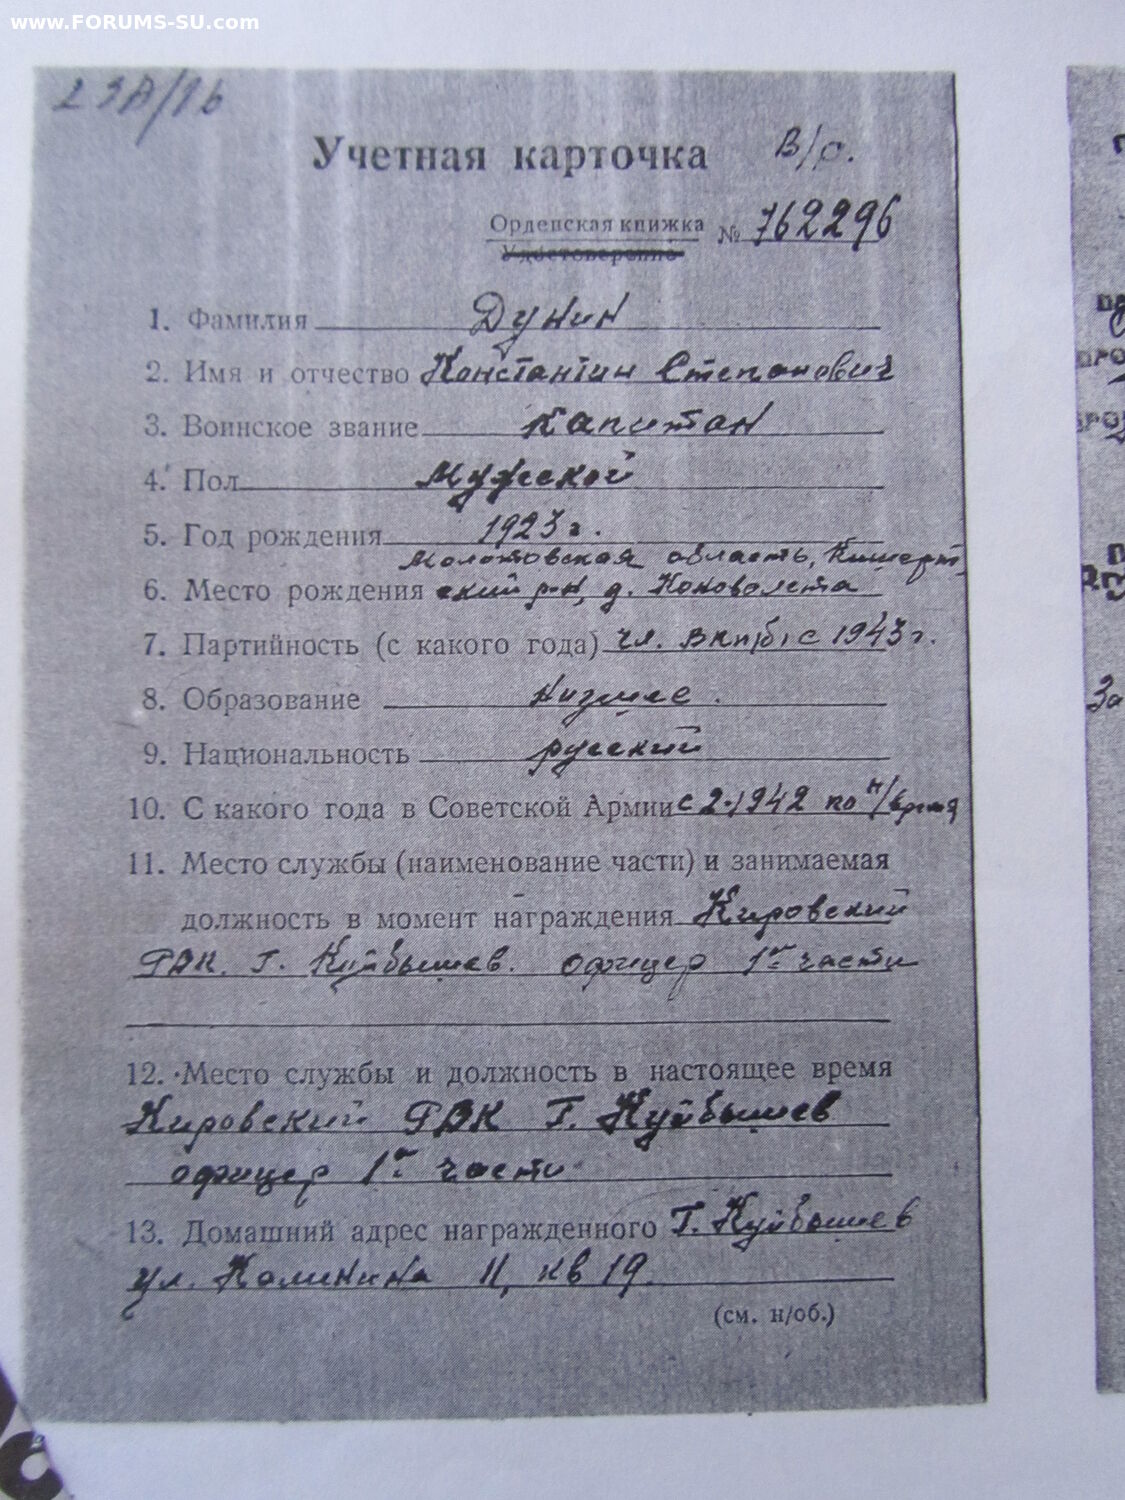 www.FORUMS-SU.com
Учетная карточка В/с.
Орденская книжка № 762296
Удостоверение
1. Фамилия Дунин
2. Имя и отчество Константин Степанович
3. Воинское звание Капитан
4. Пол Мужской
5. Год рождения 1923 г.
Молотовская область, Кишерт
6. Место рождения ский р-н, д. Коновалята
7. Партийность (с какого года) чл. ВКП(б) с 1943 г.
8. Образование низшее.
9. Национальность русский
10. С какого года в Советской Армии с 2.1942 по н/время
11. Место службы (наименование части) и занимаемая
должность в момент награждения Кировский
РВК. г. Куйбышев. офицер 1й части
12. Место службы и должность в настоящее время
Кировский РВК г. Куйбышев
офицер 1й части
13. Домашний адрес награжденного г. Куйбышев
ул. Калинина 11, кв 19.
(см. н/об.)
За